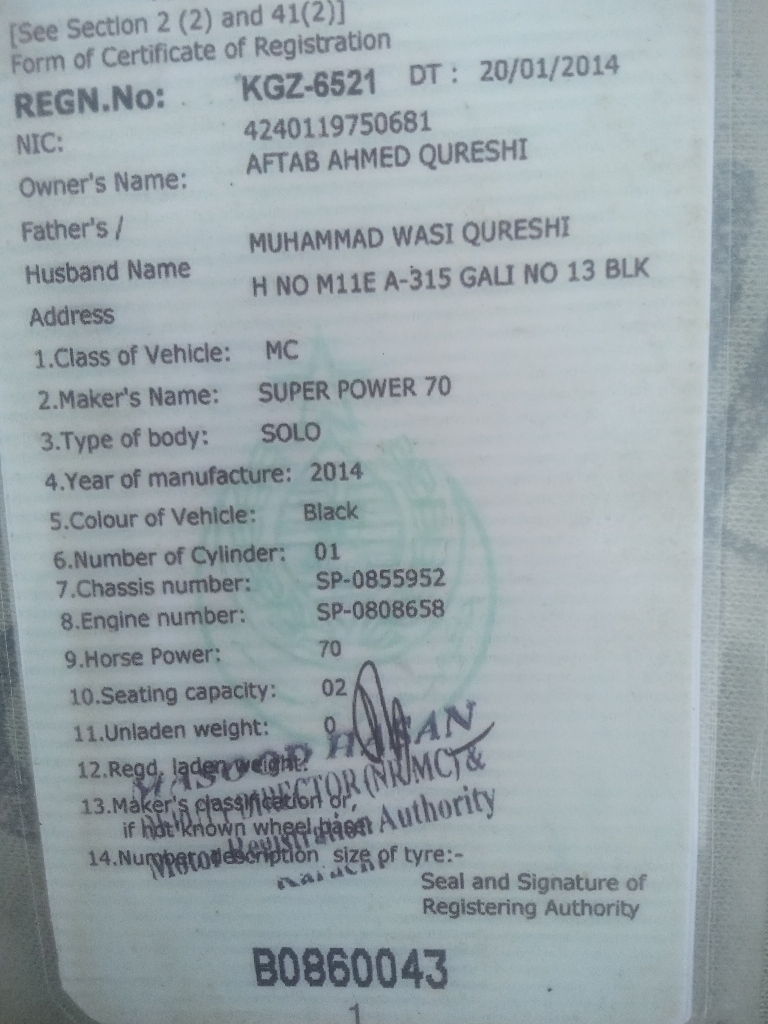 [See Section 2 (2) and 41(2)]
Form of Certificate of Registration
REGN.No: KGZ-6521 DT : 20/01/2014
NIC: 4240119750681
Owner's Name: AFTAB AHMED QURESHI
Father's /
Husband Name MUHAMMAD WASI QURESHI
Address H NO M11E A-315 GALI NO 13 BLK
1.Class of Vehicle: MC
2.Maker's Name: SUPER POWER 70
3.Type of body: SOLO
4.Year of manufacture: 2014
5.Colour of Vehicle: Black
6.Number of Cylinder: 01
7.Chassis number: SP-0855952
8.Engine number: SP-0808658
9.Horse Power: 70
10.Seating capacity: 02
11.Unladen weight: 0
12.Regd. laden weight:
13.Maker's classification or,
if not known wheel base
14.Number description size of tyre:-
MASOOD HASAN
DIRECTOR (NR/MC) &
Motor Registration Authority
Karachi
Seal and Signature of
Registering Authority
B0860043
1